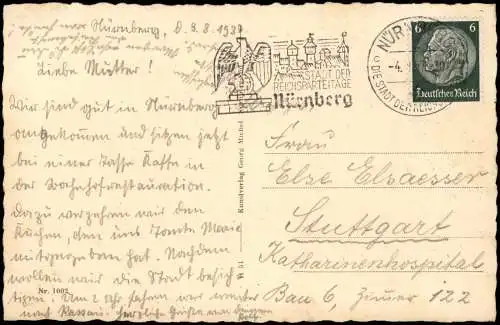 Nürnberg, d. 3.8.1939
Liebe Mutter!
Wir sind gut in Nürnberg
angekommen und sitzen jetzt
bei einer Tasse Kaffe in
der Bahnhofrestauration.
Dazu verzehren wir den
Kuchen, den uns Tante Marie
mitgegeben hat. Nachdem
wollen wir die Stadt besich
tigen. Um 2 Uhr fahren wir weiter
nach Passau. Herzliche Grüße von
Nr. 1002
W 51
Kunstverlag Georg Michel
STADT DER
REICHSPARTEITAGE
Nürnberg
NÜRN
-4.8
STADT DER REICHS
6 6
Deutsches Reich
Frau
Else Elsaesser
Stuttgart
Katharinenhospital
Bau 6, Zimmer 122